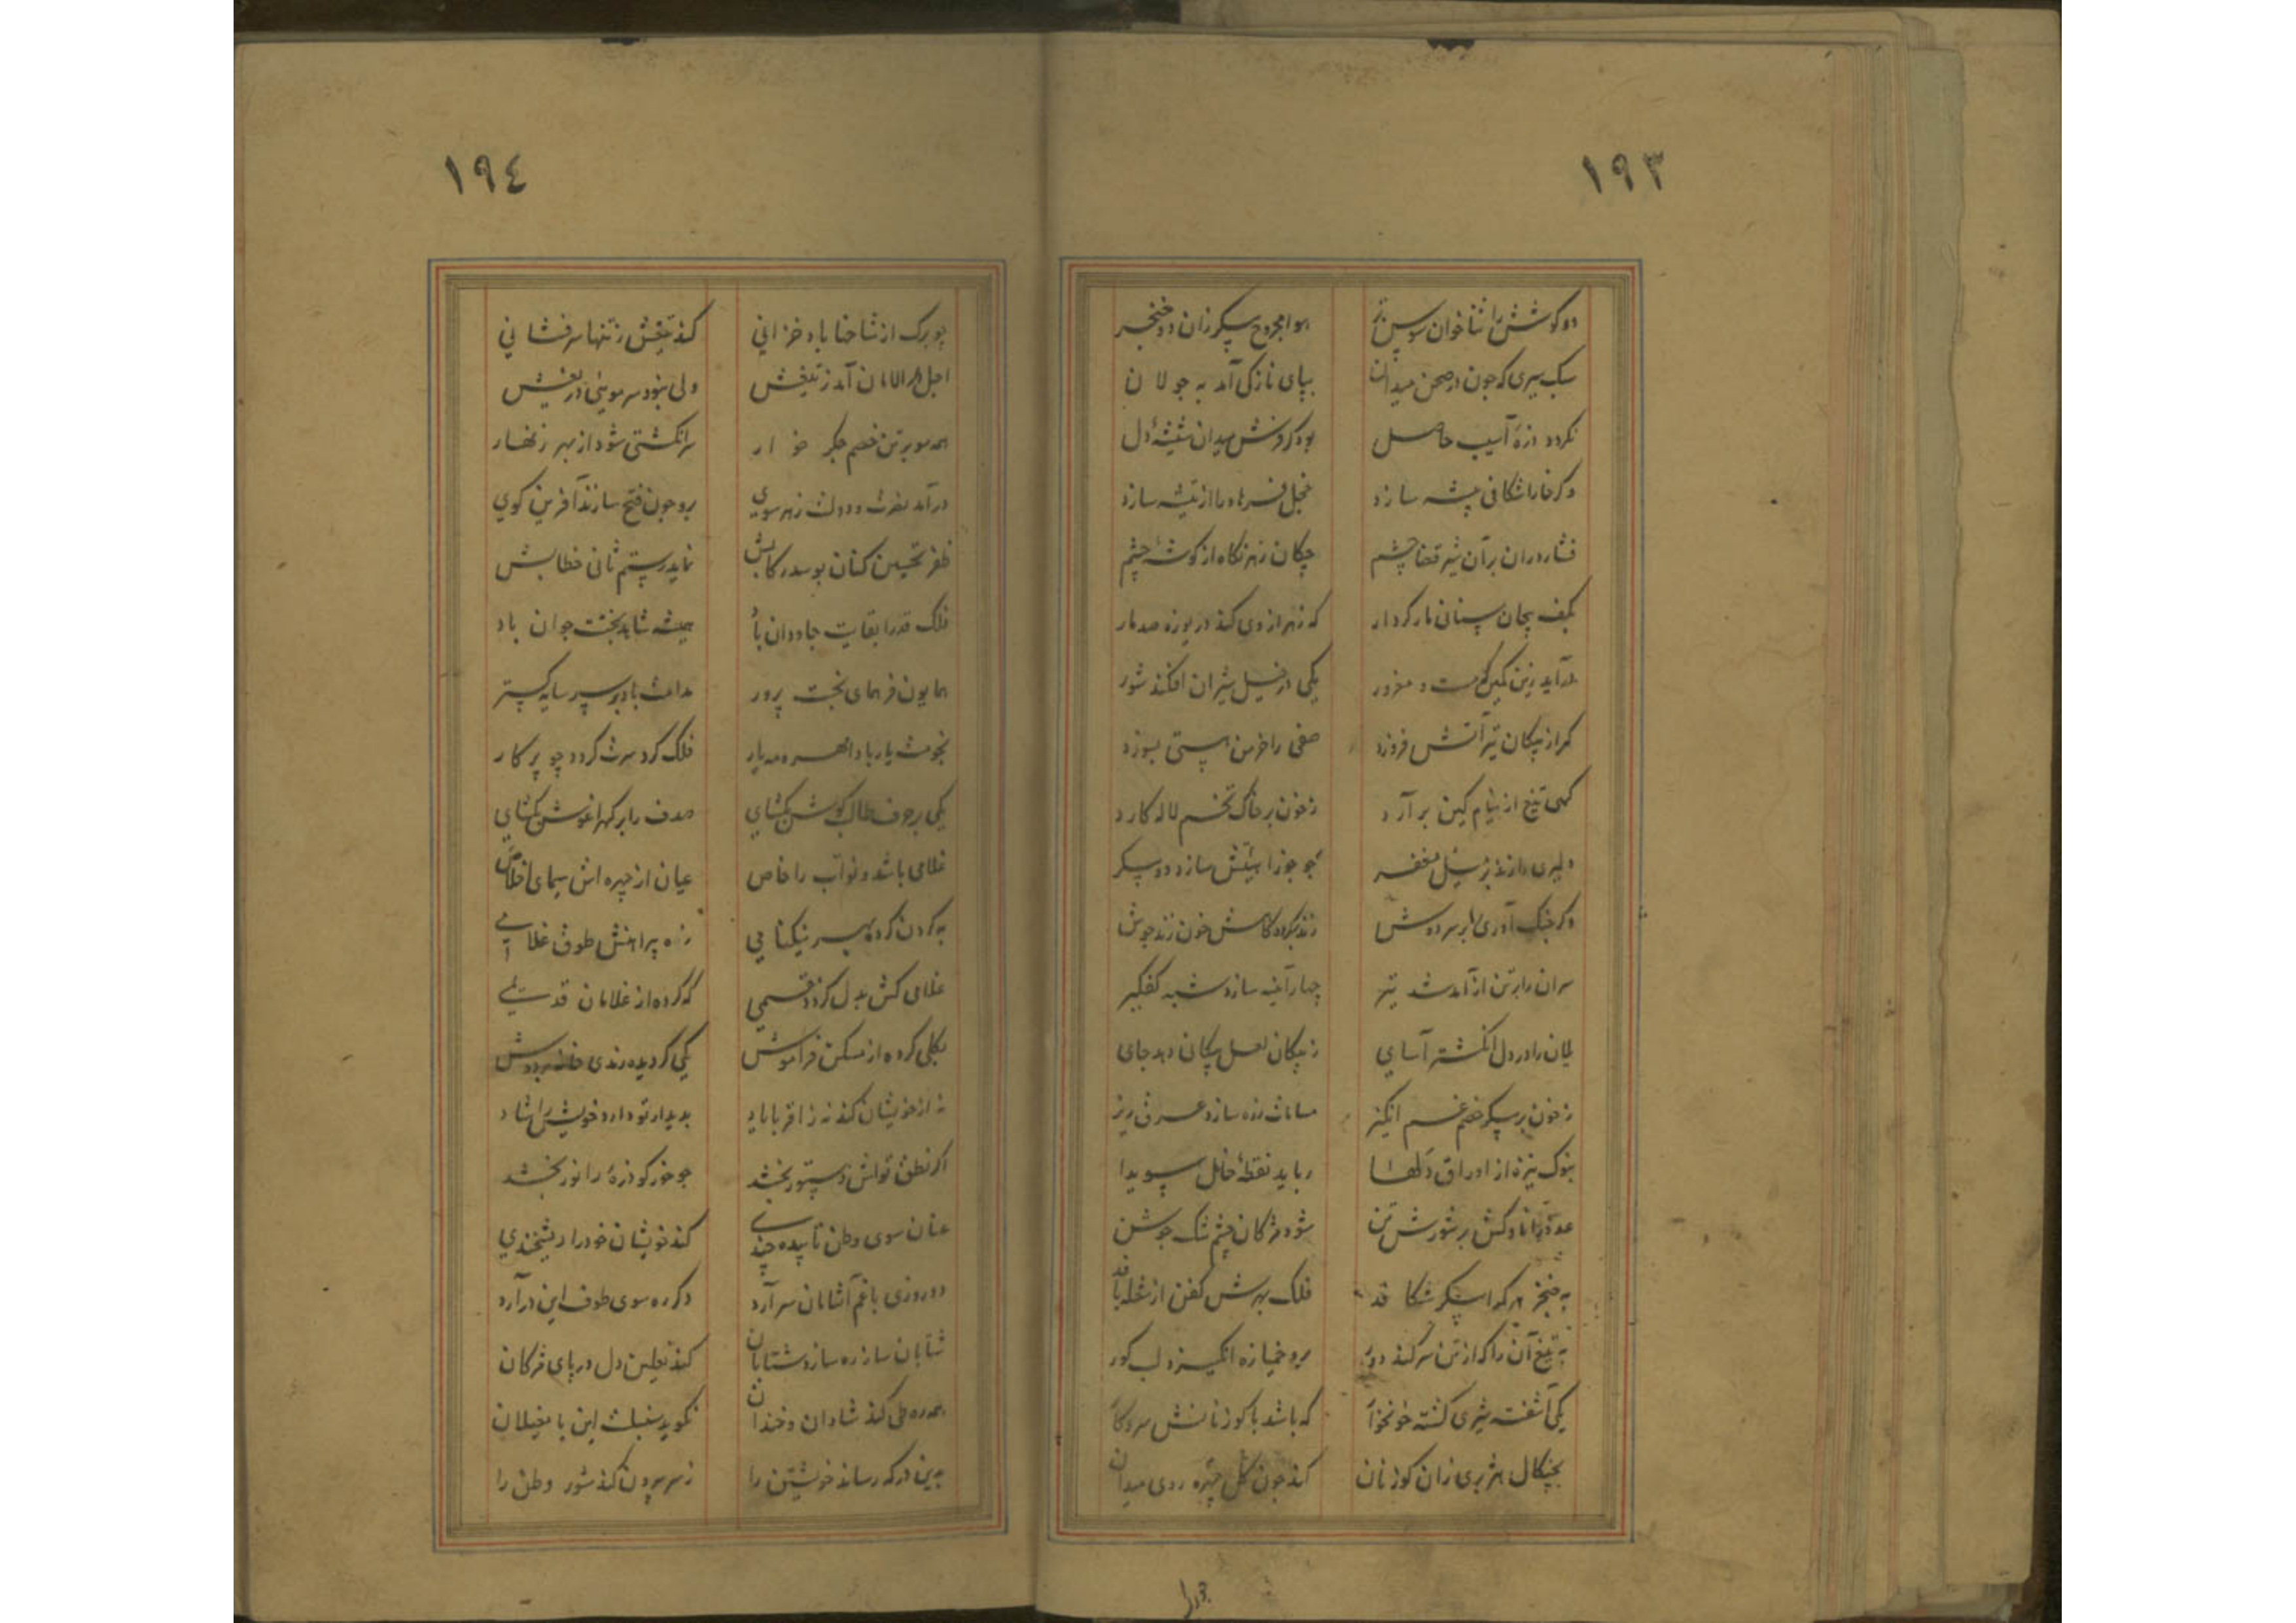 ١٩٣
دو گوشش را ثناخوان سوسن تر
هوا مجروح پیکر زان دو خنجر
سبک سیری که چون در صحن میدان
بپای نازکی آمد به جولان
نگردد ذرهٔ آسیب حاصل
بود گر گردش میدان شیشهٔ دل
وگر خارا شکافی پیشه سازد
خجل فرهاد را از تیشه سازد
فشارد ران بر آن شیر قضا چشم
چکان زهر نگاه از گوشهٔ چشم
بکف پیچان سنانی مار کردار
که زهر از وی کند دریوزه صد مار
درآید زین کمین مست و مغرور
یکی در خیل شیران افکند شور
گر از پیکان تیر آتش فروزد
صفی را خرمن هستی بسوزد
گهی تیغ از نیام کین برآرد
ز خون بر خاک تخم لاله کارد
دلیری را زند بر مغفر
چو جوزا تیغش سازد دو پیکر
وگر جنگ آوری را بر سر دوش
زند خون زند جوش
سران را بر تن از آمد شد تیر
چهار آینه سازد شبه کفگیر
یلان را در دل انگشتر آسای
ز پیکان لعل پیکان دهد جای
ز خون بر پیکر خصم غم انگیز
مسامات زره سازد عرق ریز
بنوک نیزه از اوراق دلها
رباید نقطهٔ خال سویدا
عدو را ناوکش بر شورش تن
شود مژگان چشم تنگ جوشن
به خنجر هر که را پیکر شکافد
فلک بهرش کفن از شعله بافد
به تیغ آن را که از تن سر کند دور
برو خمیازه انگیزد لب گور
یکی آشفته شیری گشته خونخوار
که باشد با گوزنانش سر و کار
بچنگال هژبری زان گوزنان
کند چون گل چهره روی میدان
١٩٤
چو برگ از شاخها باد خزانی
کند تیغش ز تنها سرفشانی
اجل در الامان آمد ز تیغش
ولی نبود سر مویی دریغش
همه مو بر تن خصم جگر خوار
سر انگشتی شود از بهر زنهار
درآید نصرت و دولت ز هر سوی
برو چون فتح سازند آفرین گوی
ظفر تحسین کنان بوسد رکابش
نماید رستم ثانی خطابش
فلک قدرا بقایت جاودان باد
همیشه شاهد بختت جوان باد
همایون فر همای بخت پرور
مدامت باد بر سر سایه گستر
نجومت یار بادا مهر و مه یار
فلک گرد سرت گردد چو پرگار
یکی بر حرف طالب گوش بگشای
صدف را بر گهر آغوش بگشای
غلامی باشد و نواب را خاص
عیان از چهره اش سیمای اخلاص
به گردن کرده بهر نیکنامی
زه پیراهنش طوق غلامی
غلامی کش بدل گردد قسمی
که کرده از غلامان قدیمی
بکلی کرده از مسکن فراموش
یکی گردیده رندی خانه بر دوش
نه از خویشان کند نه ز اقربا یاد
بدیدار تو دارد خویش را شاد
اگر نطق تواش دستور بخشد
چو خور کو ذرهٔ را نور بخشد
عنان سوی وطن تابیده چندی
کند خویشان خود را ریشخندی
دو روزی با غم آشنایان سر آرد
دگر ره سوی طوف این در آرد
شتابان ساز ره سازد شتابان
کند نعلین دل در پای مژگان
همه ره طی کند شادان و خندان
نگوید سنبلست این یا مغیلان
بدین درگه رساند خویشتن را
ز سر بیرون کند شور وطن را